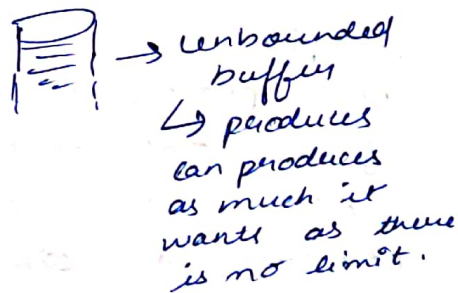 → unbounded
buffer
↳ produces
can produces
as much it
wants as there
is no limit.